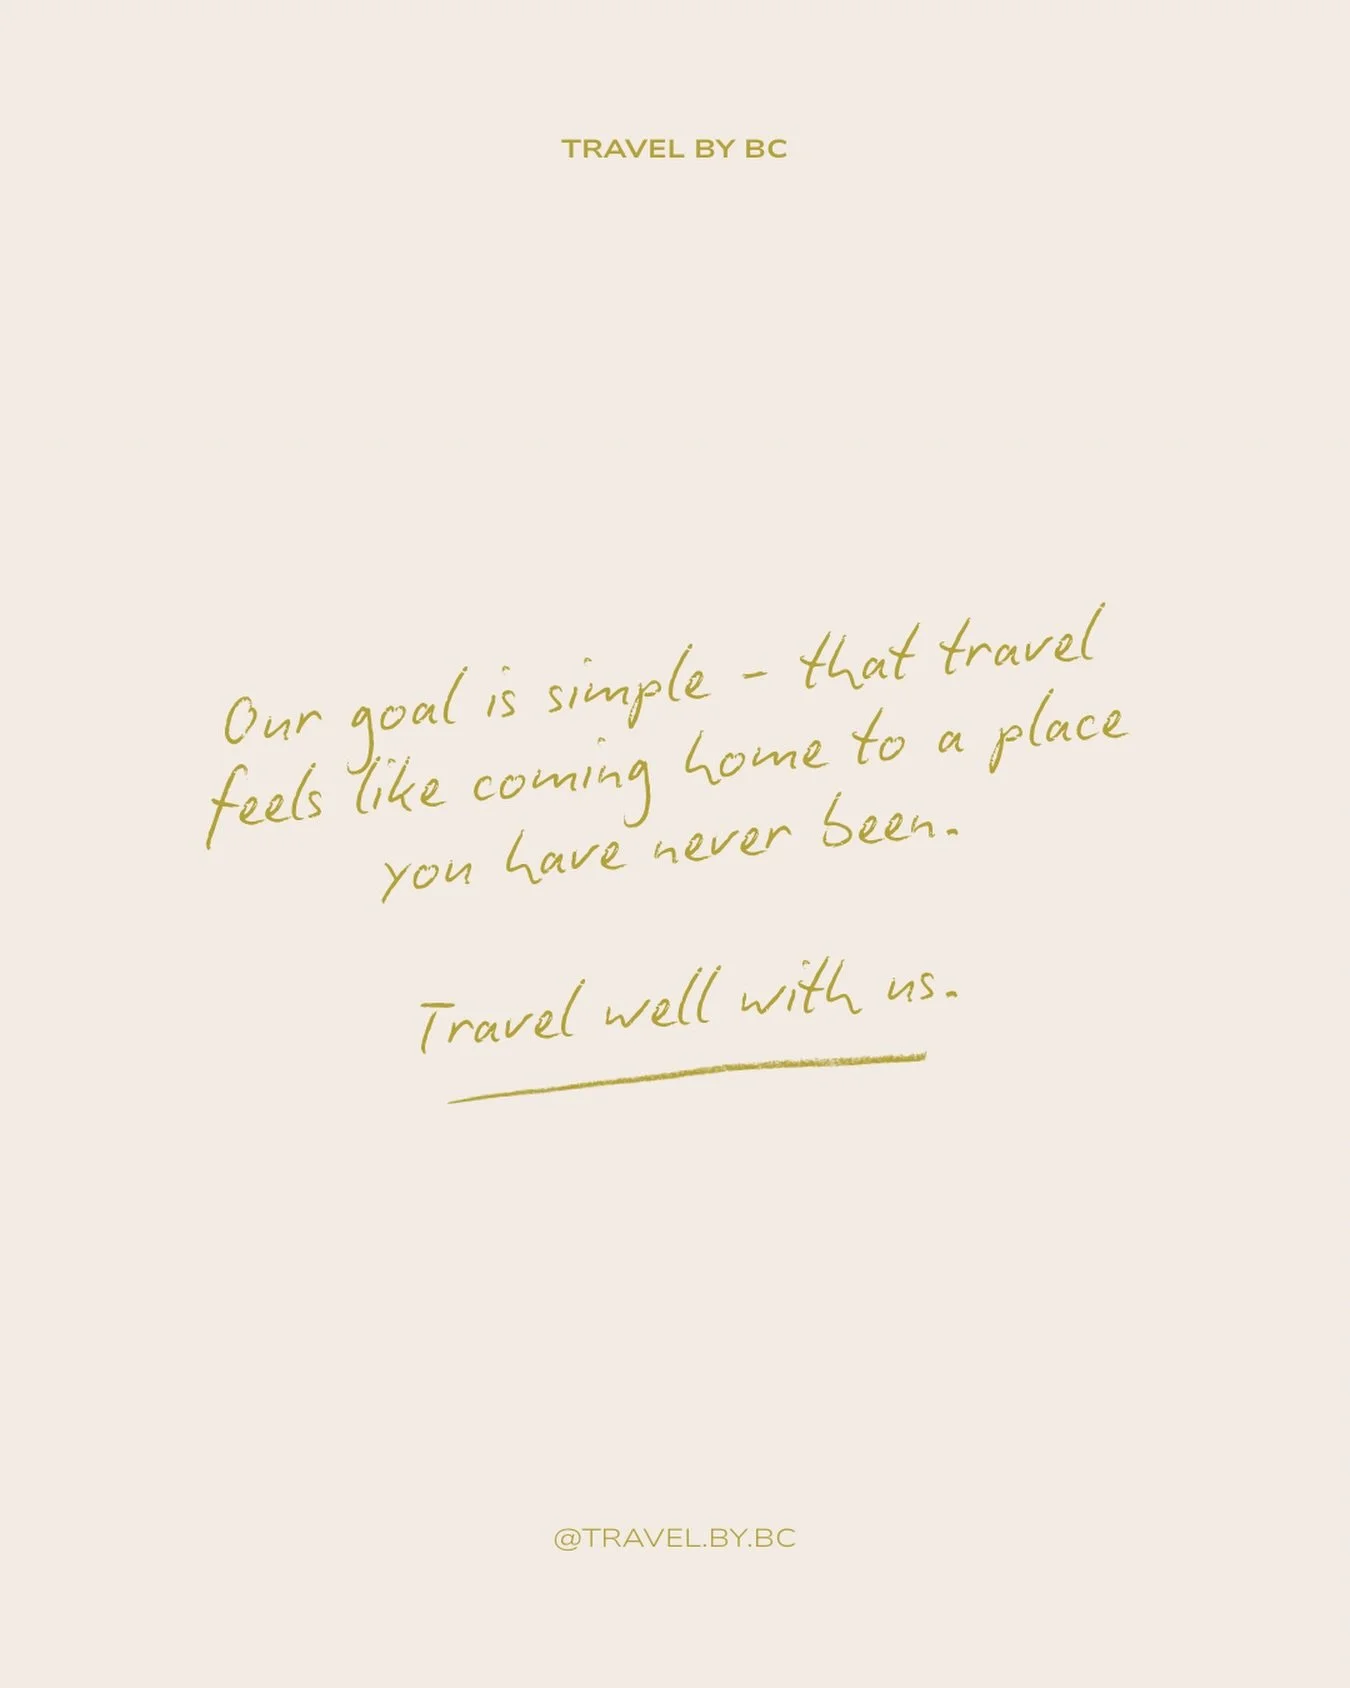 TRAVEL BY BC
Our goal is simple - that travel
feels like coming home to a place
you have never been.
Travel well with us.
@TRAVEL.BY.BC